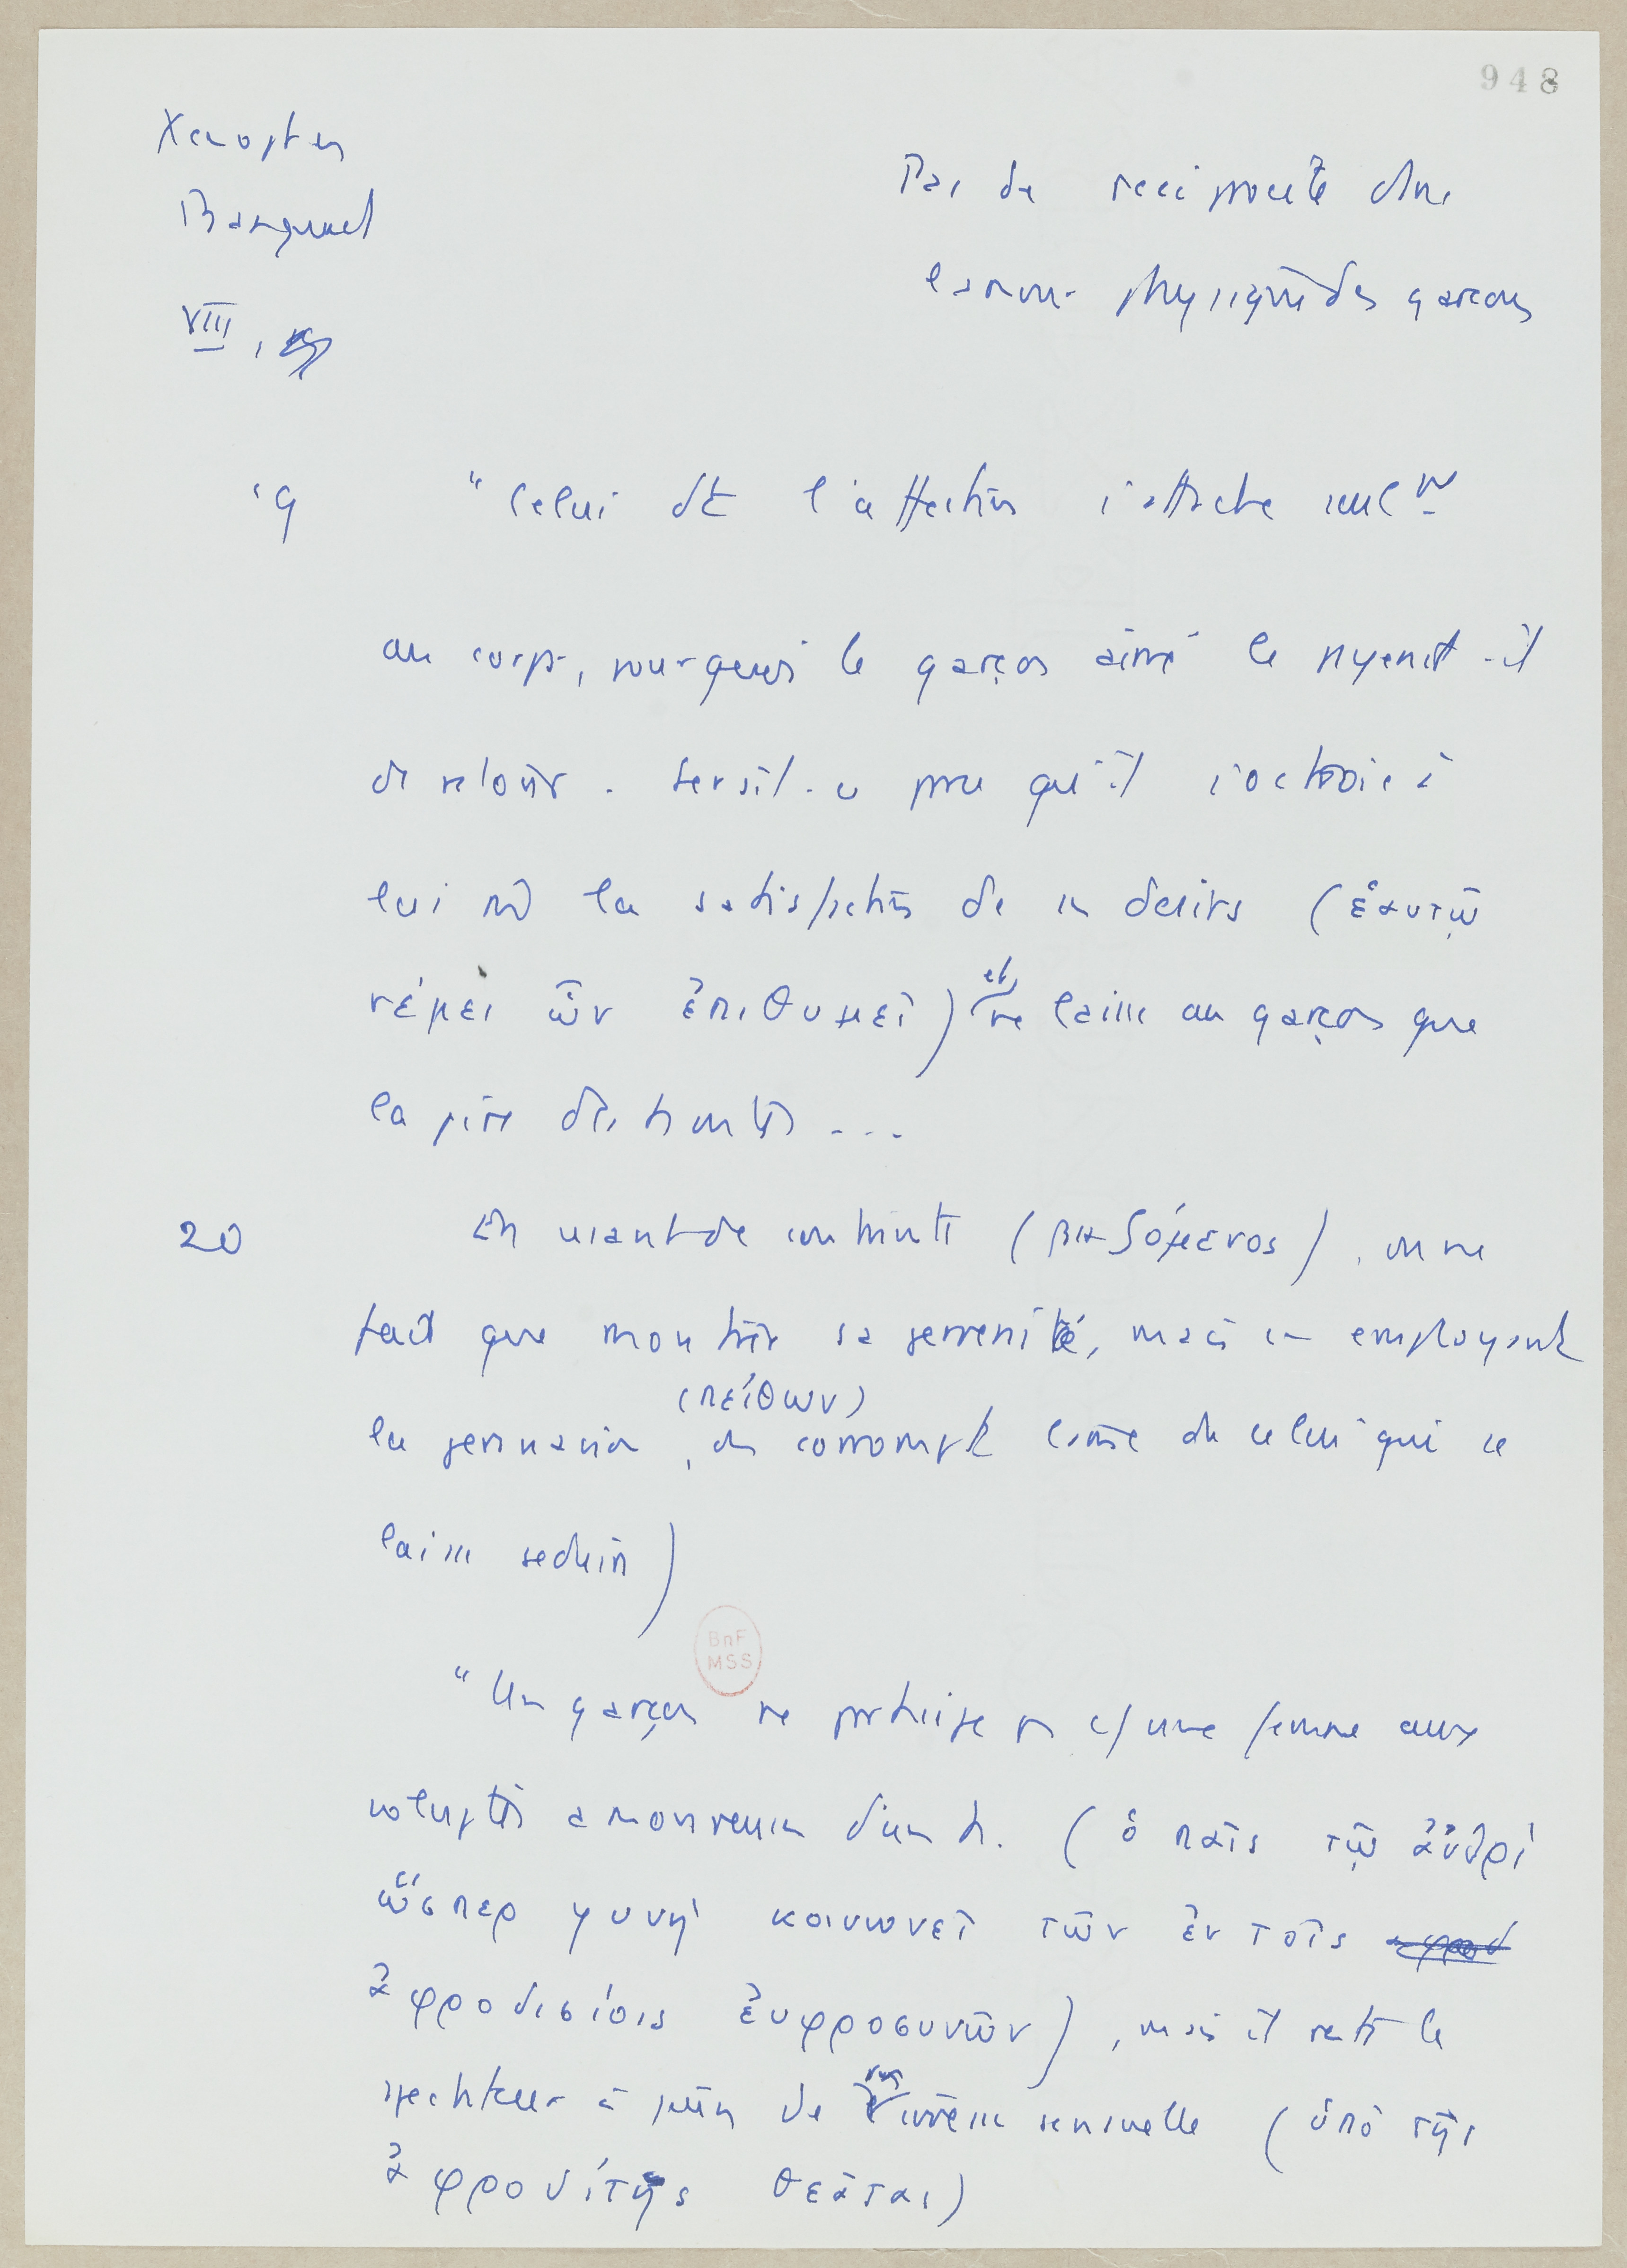 948
Xenophon
Banquet
VIII,
Pas de reciprocité dans
l'amour physique des garçons
19 "Celui dt l'affection s'attache seulmt
au corps, pourquoi le garçon aimé le payerait-il
de retour. Serait-ce parce qu'il s'octroie à
lui mê la satisfaction de ses desirs (ἑαυτῷ
νέμει ὧν ἐπιθυμεῖ) et ne laisse au garçon que
la pire des hontes ...
20 En usant de contrainte (βιαζόμενος), on ne
fait que montrer sa perversité, mais en employant
(πείθων)
la persuasion, on corrompt l'âme de celui qui se
laisse seduire)
BnF
MSS
"Un garçon ne participe ps c/ une femme aux
voluptés amoureuses d'un h. (ὁ παῖς τῷ ἀνδρὶ
ὥσπερ γυνὴ κοινωνεῖ τῶν ἐν τοῖς
ἀφροδισίοις ἐυφροσυνῶν), mais il reste le
spectateur à jeûn de son ivresse sensuelle (ὑπὸ τῆς
ἀφροδίτης θεᾶται)